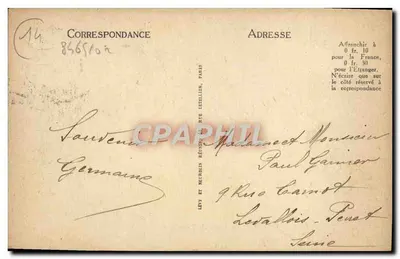 14
CORRESPONDANCE
ADRESSE
Affranchir à
0 fr. 10
pour la France,
0 fr. 30
pour l'Etranger.
N'écrire que sur
le côté réservé à
la correspondance
Souvenir
Germaine
LÉVY ET NEURDEIN RÉUNIS, RUE LETELLIER, PARIS
CPARHIL
Madame et Monsieur
Paul Garnier
9 Rue Carnot
Levallois-Perret
Seine